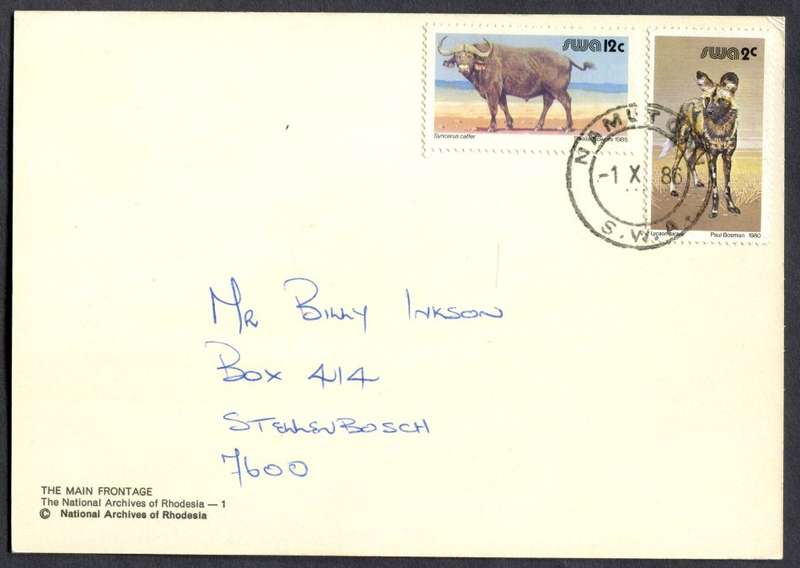 swa 12c
Syncerus caffer
1985
swa 2c
Paul Bosman 1980
NAMUTO
-1 X 86
S.W.A.
Mr Billy Inkson
Box 414
Stellenbosch
7600
THE MAIN FRONTAGE
The National Archives of Rhodesia — 1
© National Archives of Rhodesia